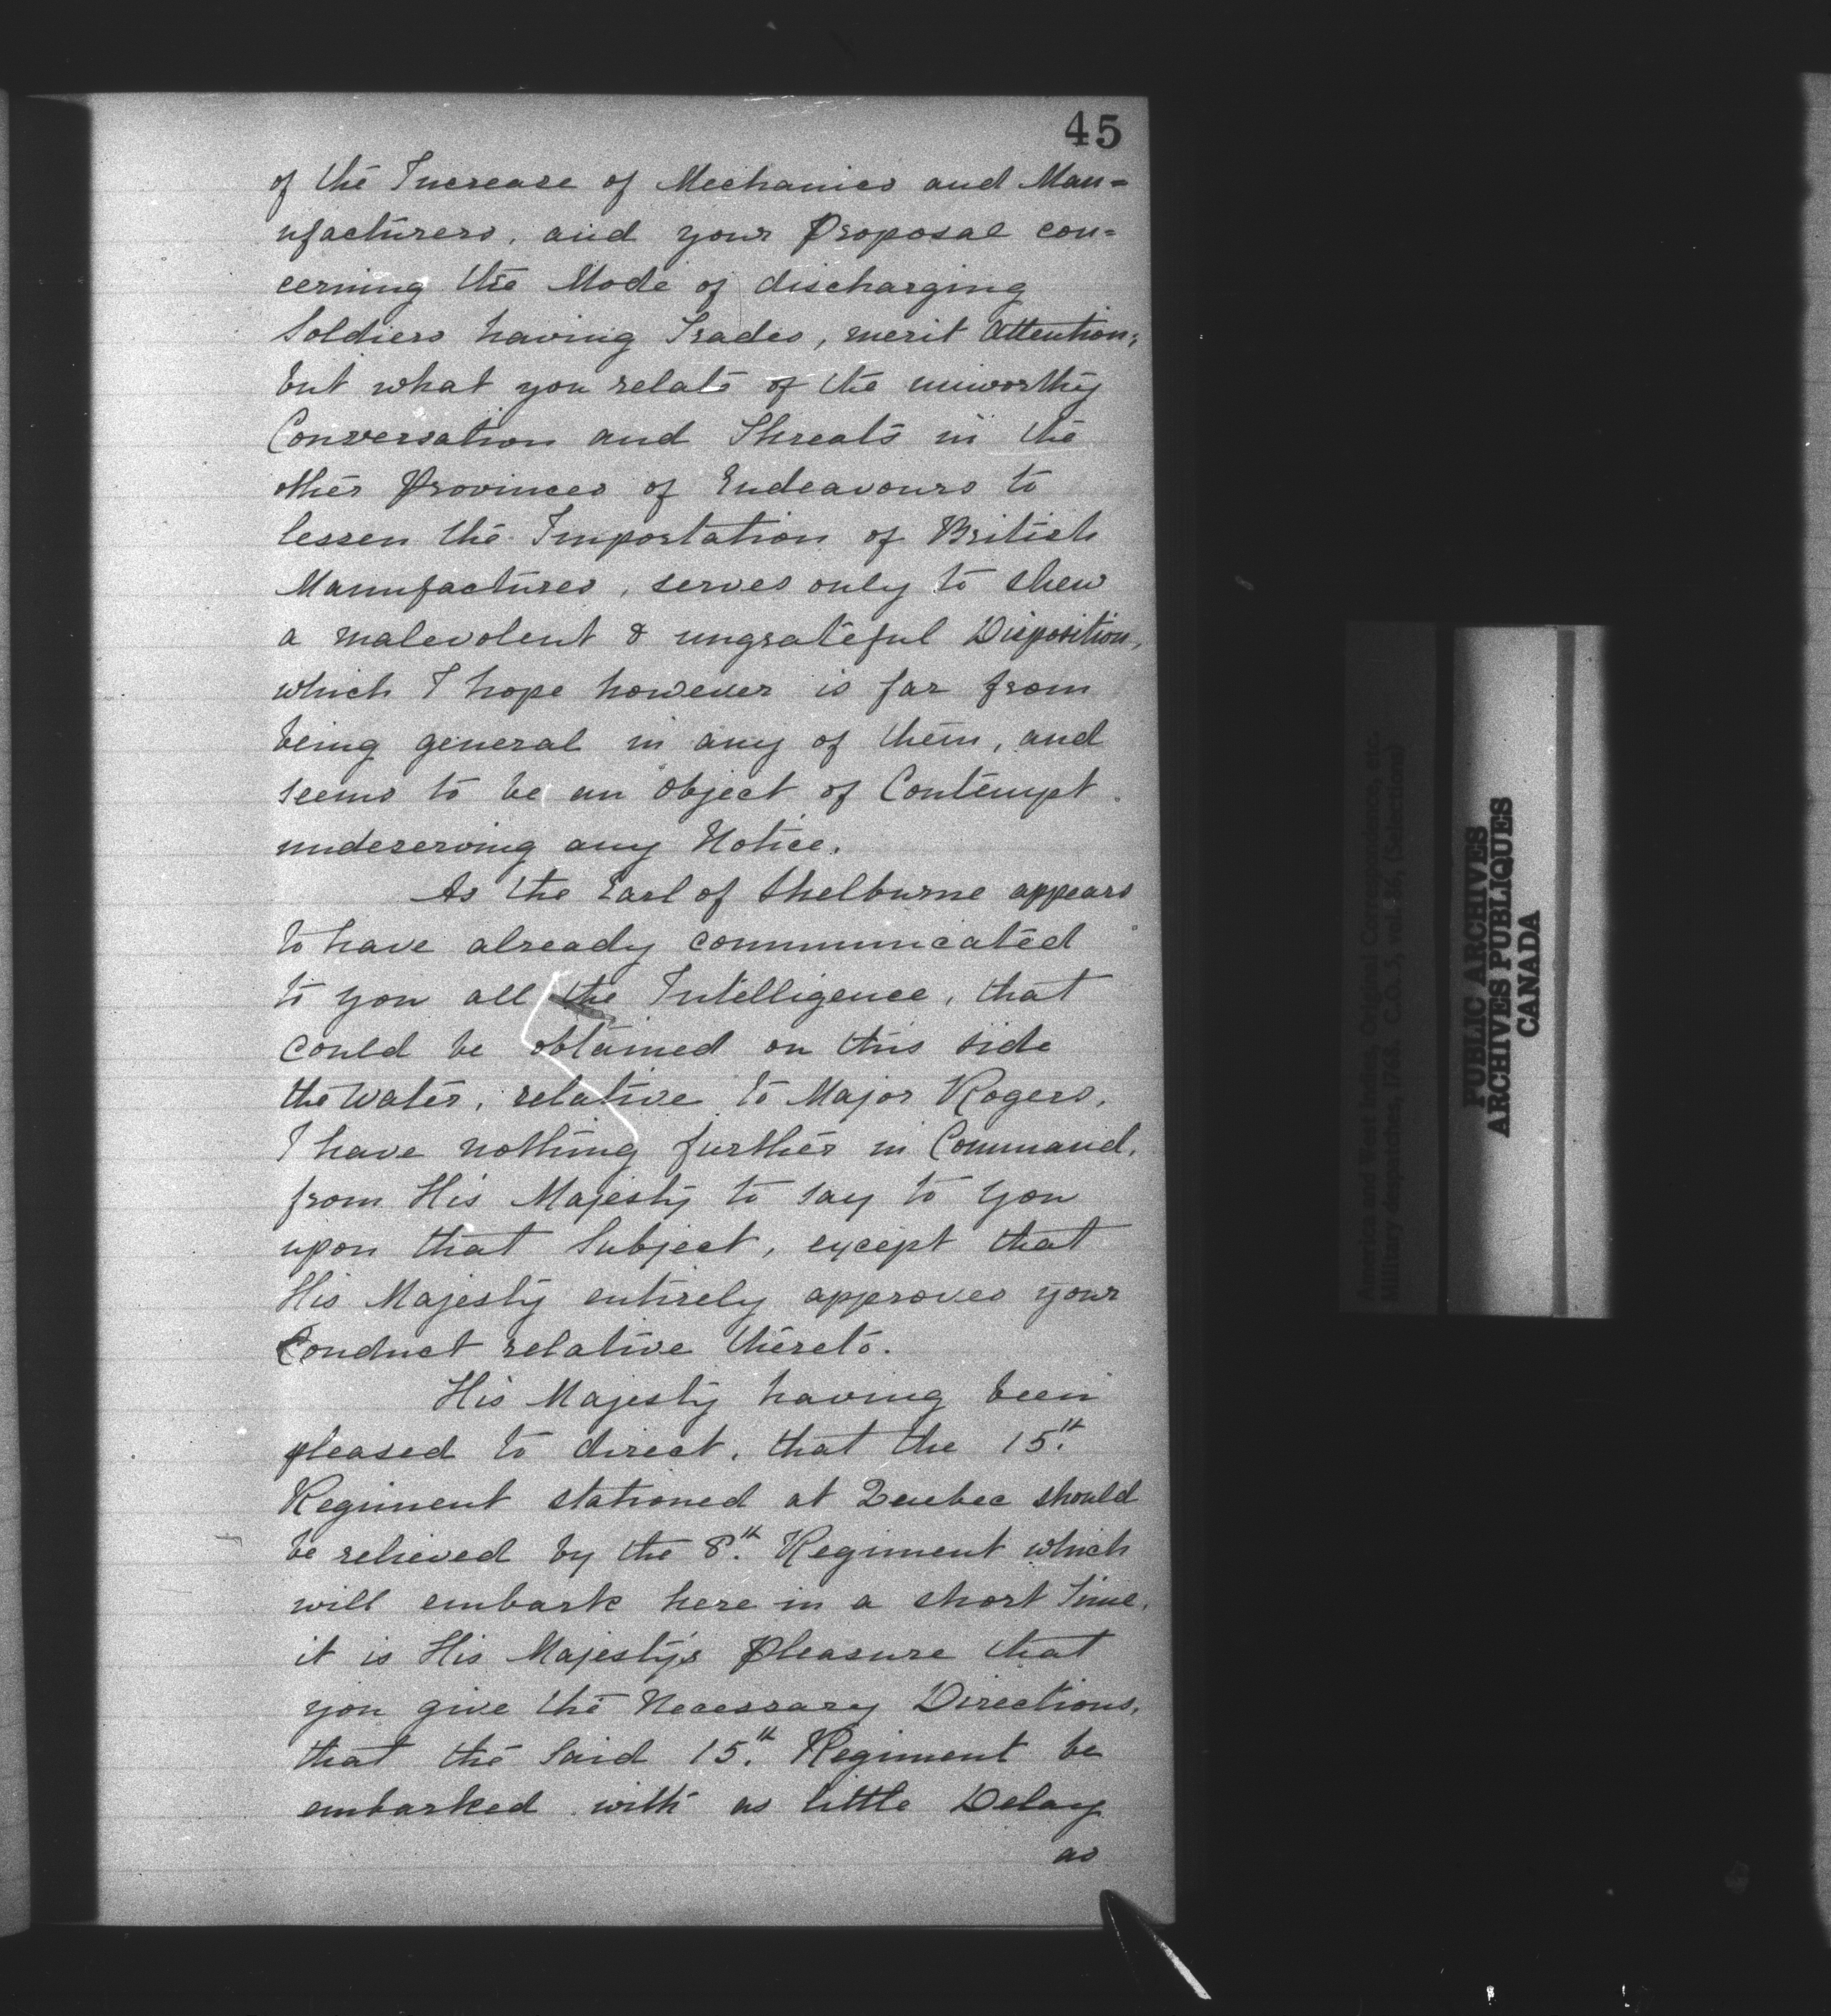 45
of the Increase of Mechanics and Man=
ufacturers, and your Proposal con=
cerning the Mode of discharging
Soldiers having Trades, merit Attention;
but what you relate of the unworthy
Conversation and Threats in the
other Provinces of Endeavours to
lessen the Importation of British
Manufactures, serves only to shew
a malevolent & ungrateful Disposition,
which I hope however is far from
being general in any of them, and
seems to be an object of Contempt
undeserving any Notice.
As the Earl of Shelburne appears
to have already communicated
to you all the Intelligence, that
could be obtained on this side
the Water, relative to Major Rogers,
I have nothing further in Command,
from His Majesty to say to you
upon that Subject, except that
His Majesty entirely approves your
Conduct relative thereto.
His Majesty having been
pleased to direct, that the 15.th
Regiment stationed at Quebec should
be relieved by the 8.th Regiment which
will embark here in a short time,
it is His Majesty's Pleasure that
you give the Necessary Directions,
that the said 15.th Regiment be
embarked with as little Delay
as
America and West Indies, Original Correspondence, etc.
Military despatches, 1768. C.O. 5, vol. 86, (Selections)
PUBLIC ARCHIVES
ARCHIVES PUBLIQUES
CANADA